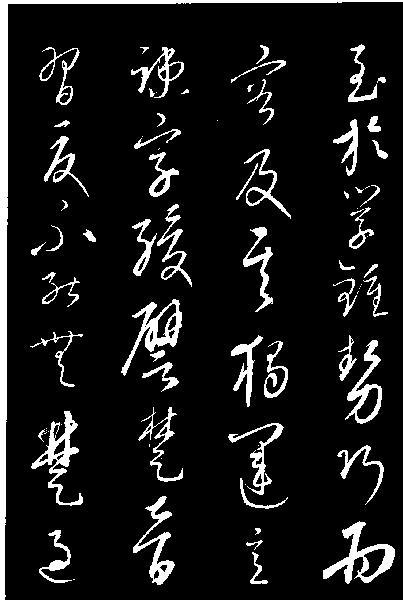 至於學鍾勢巧而
密及其獨運意
疎字緩譬楚音
習夏不能無楚過